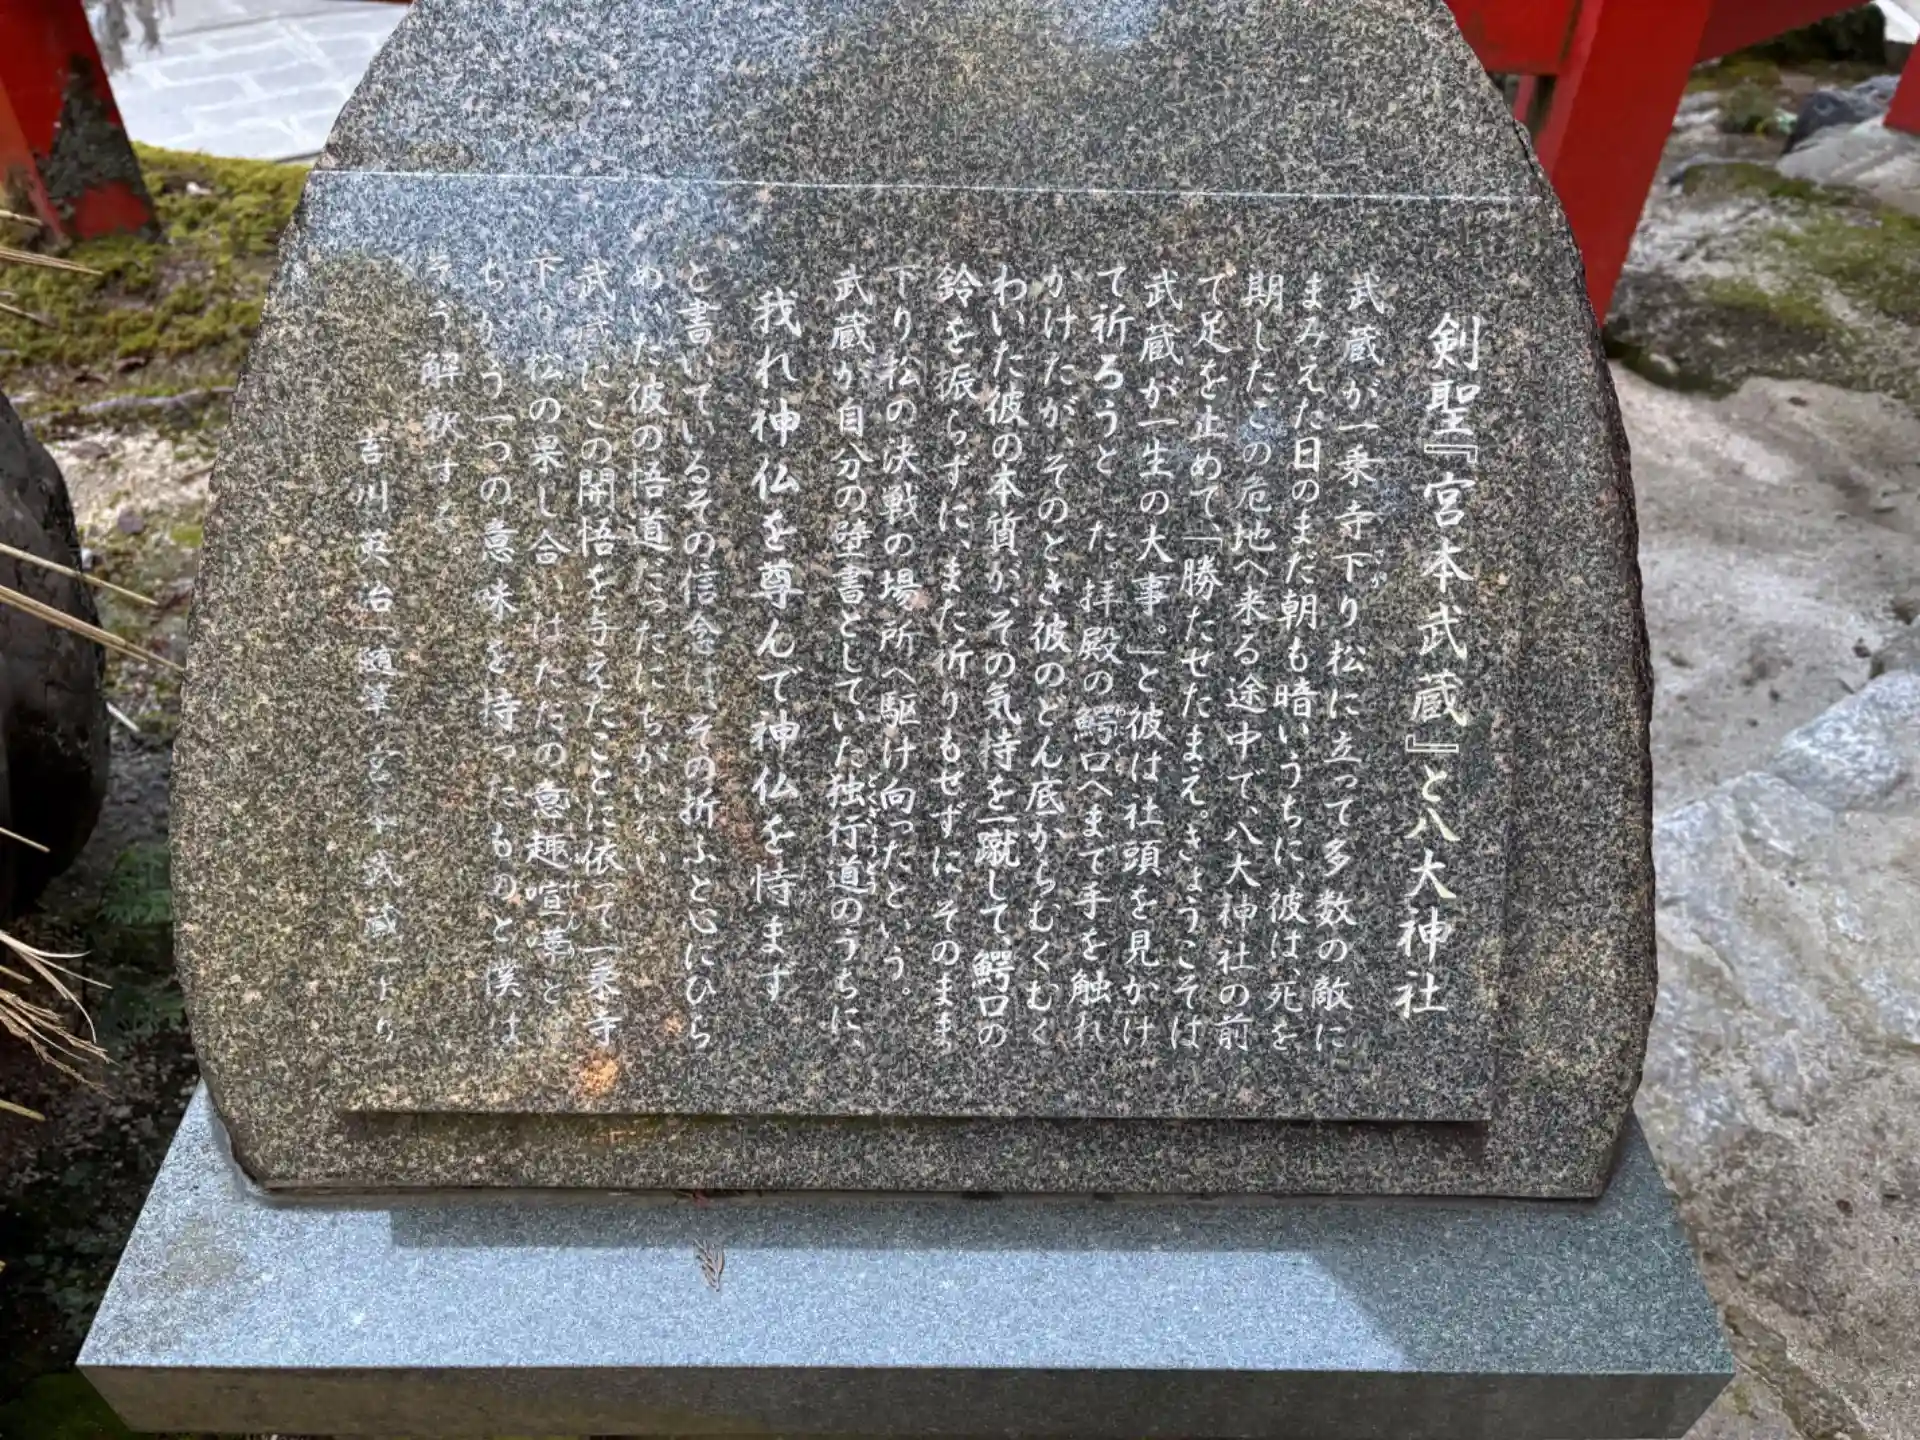 剣聖『宮本武蔵』と八大神社
武蔵が一乗寺下り松に立って多数の敵に
まみえた日のまだ朝も暗いうちに、彼は、死を
期したこの危地へ来る途中で、八大神社の前
で足を止めて、「勝たせたまえ。きょうこそは
武蔵が一生の大事。」と彼は社頭を見かけ
て祈ろうとした。拝殿の鰐口へまで手を触れ
かけたが、そのとき彼のどん底からむくむく
わいた彼の本質が、その気持を一蹴して、鰐口の
鈴を振らずに、また祈りもせずに、そのまま
下り松の決戦の場所へ駆け向ったという。
武蔵が自分の壁書としていた独行道のうちに、
我れ神仏を尊んで神仏を恃まず
と書いているその信念は、その折ふと心にひら
めいた彼の悟道だったにちがいない。
武蔵にこの開悟を与えたことに依って一乗寺
下り松の果し合いはただの意趣喧嘩と
ちがう一つの意味を持ったものと僕は
そう解釈する。
吉川英治「随筆 宮本武蔵」より